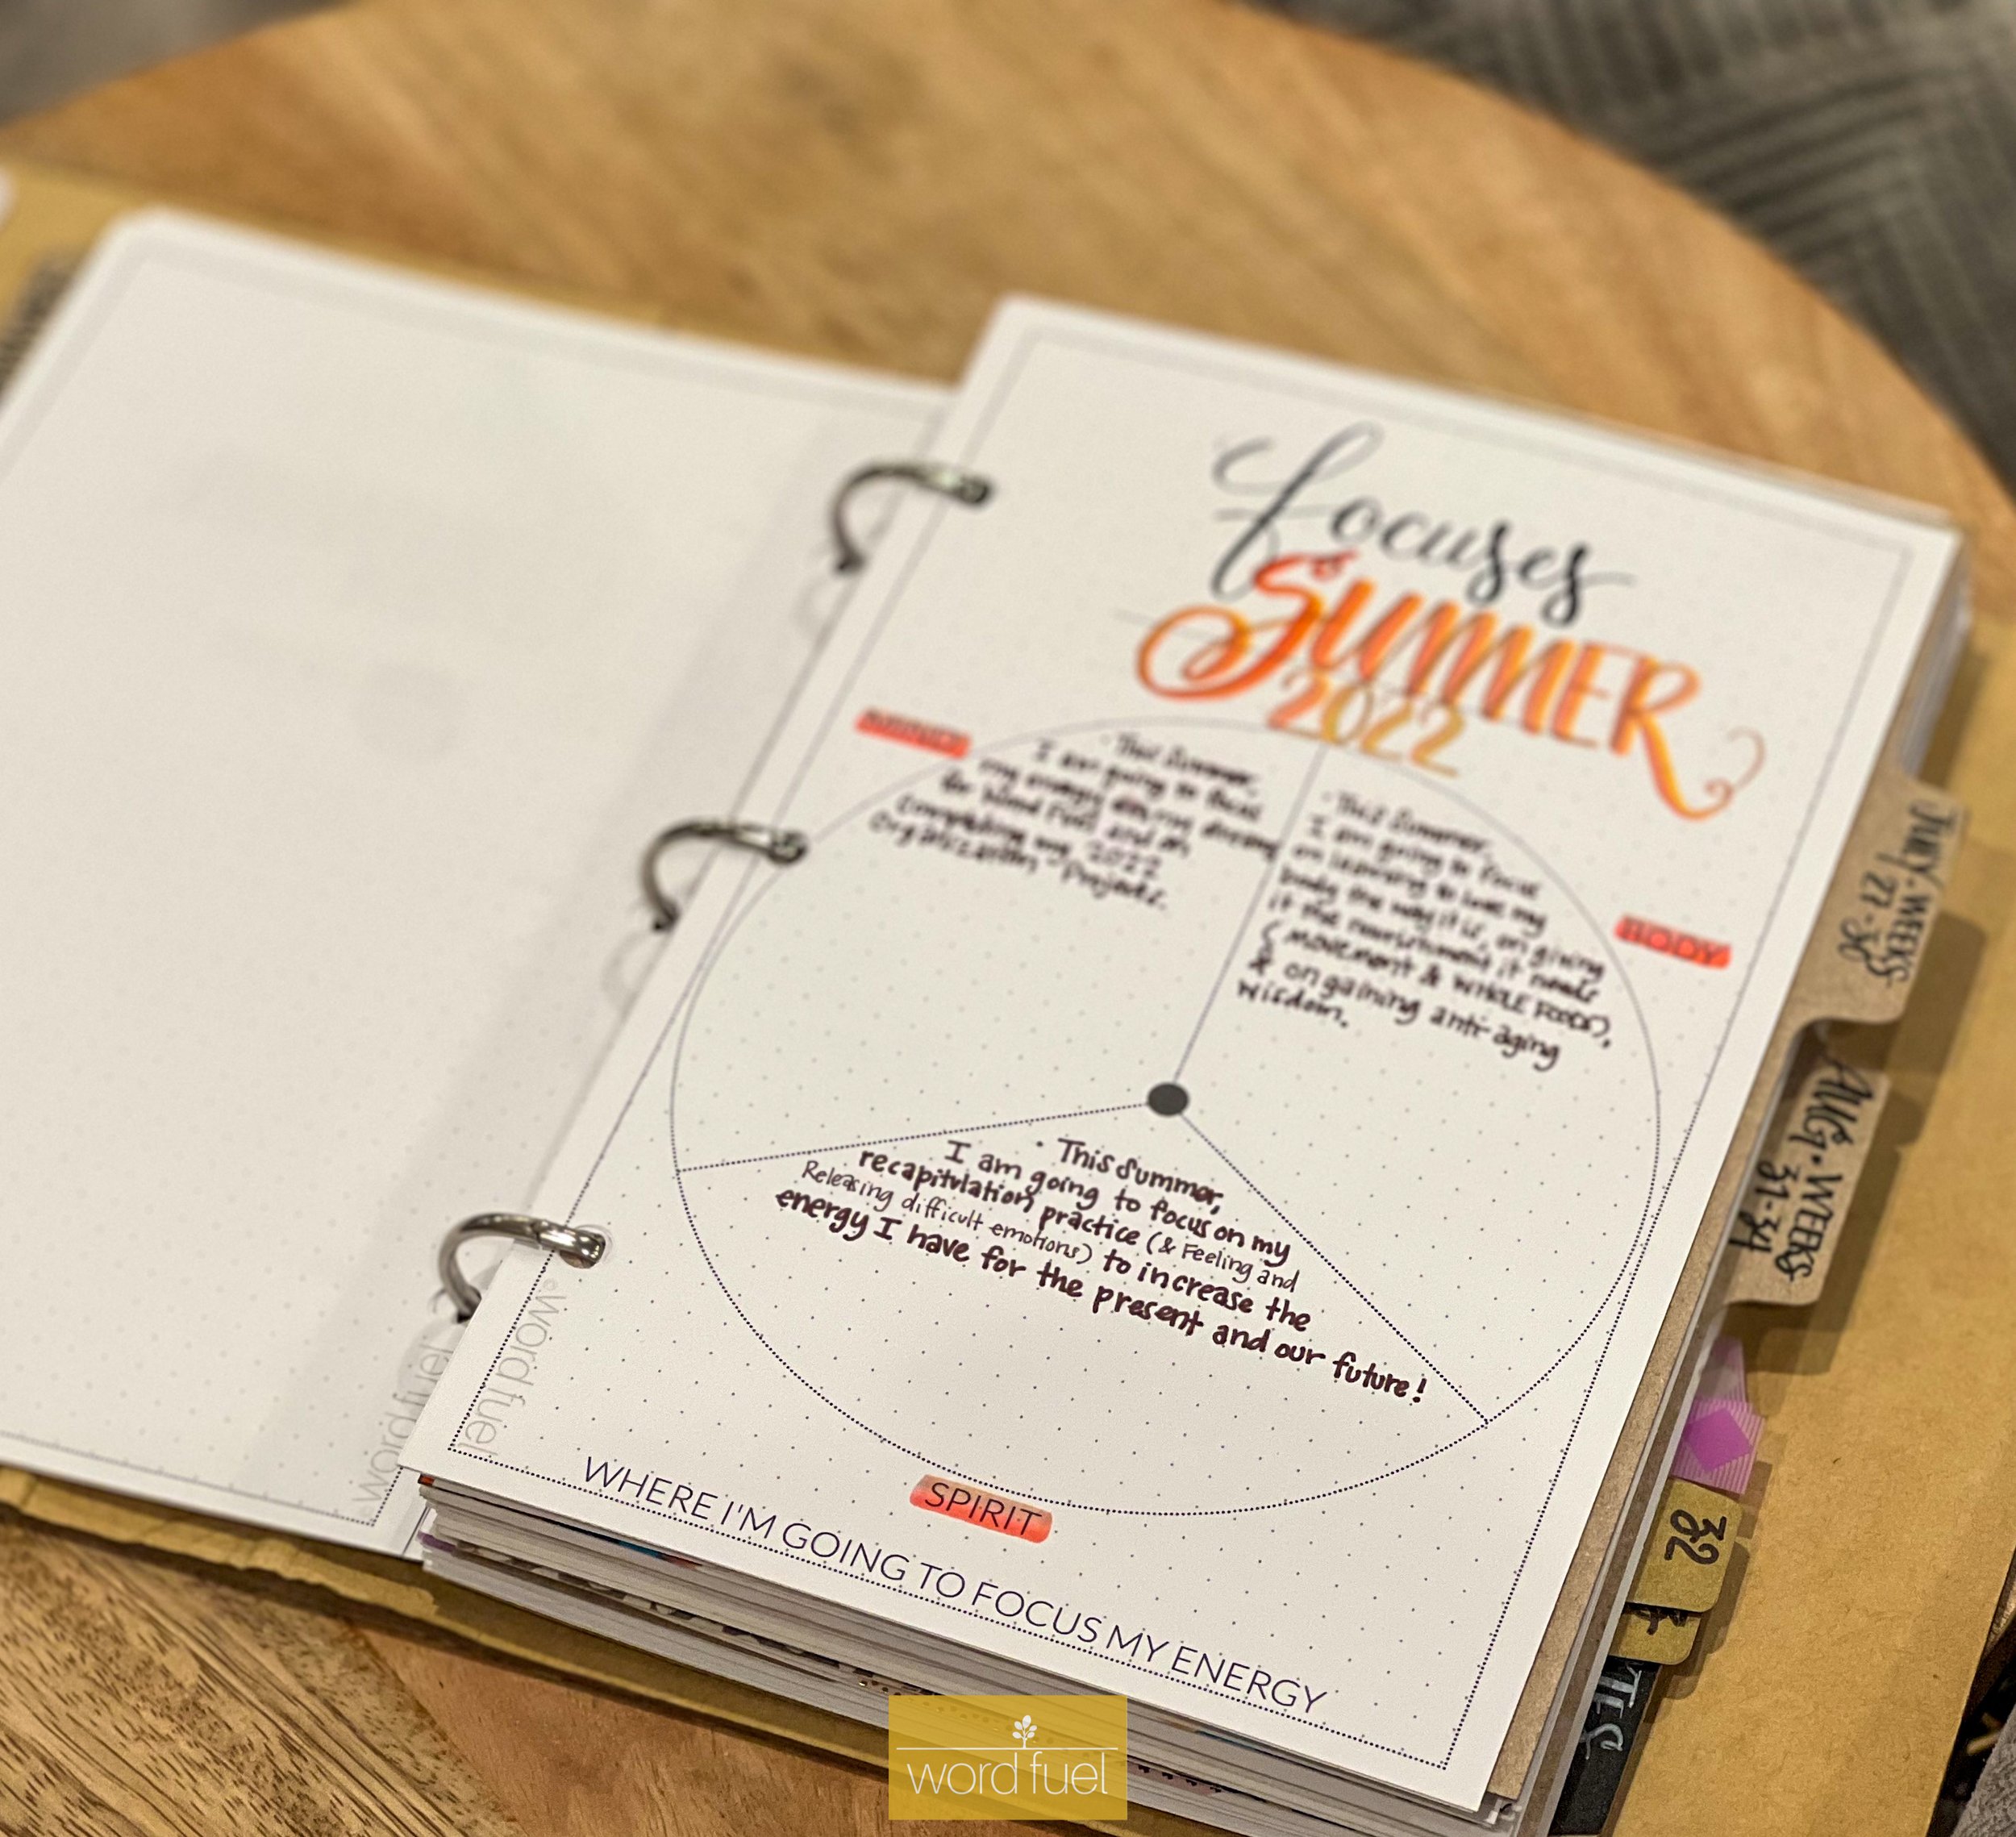 focuses
SUMMER
2022
MIND
• This Summer,
I am going to focus
my energy
for Word Fuel and on
Completing my 2022
Organization Projects.
• This Summer,
I am going to focus
on learning to love my
body the way it is, on giving
it the nourishment it needs
( MOVEMENT & WHOLE FOODS),
& on gaining anti-aging
wisdom.
BODY
• This Summer,
I am going to focus on my
recapitulation practice (& Feeling and
Releasing difficult emotions) to increase the
energy I have for the present and our future!
SPIRIT
WHERE I'M GOING TO FOCUS MY ENERGY
©word fuel
word fuel
JULY • WEEKS
27-30
AUG • WEEKS
31-34
32
word fuel